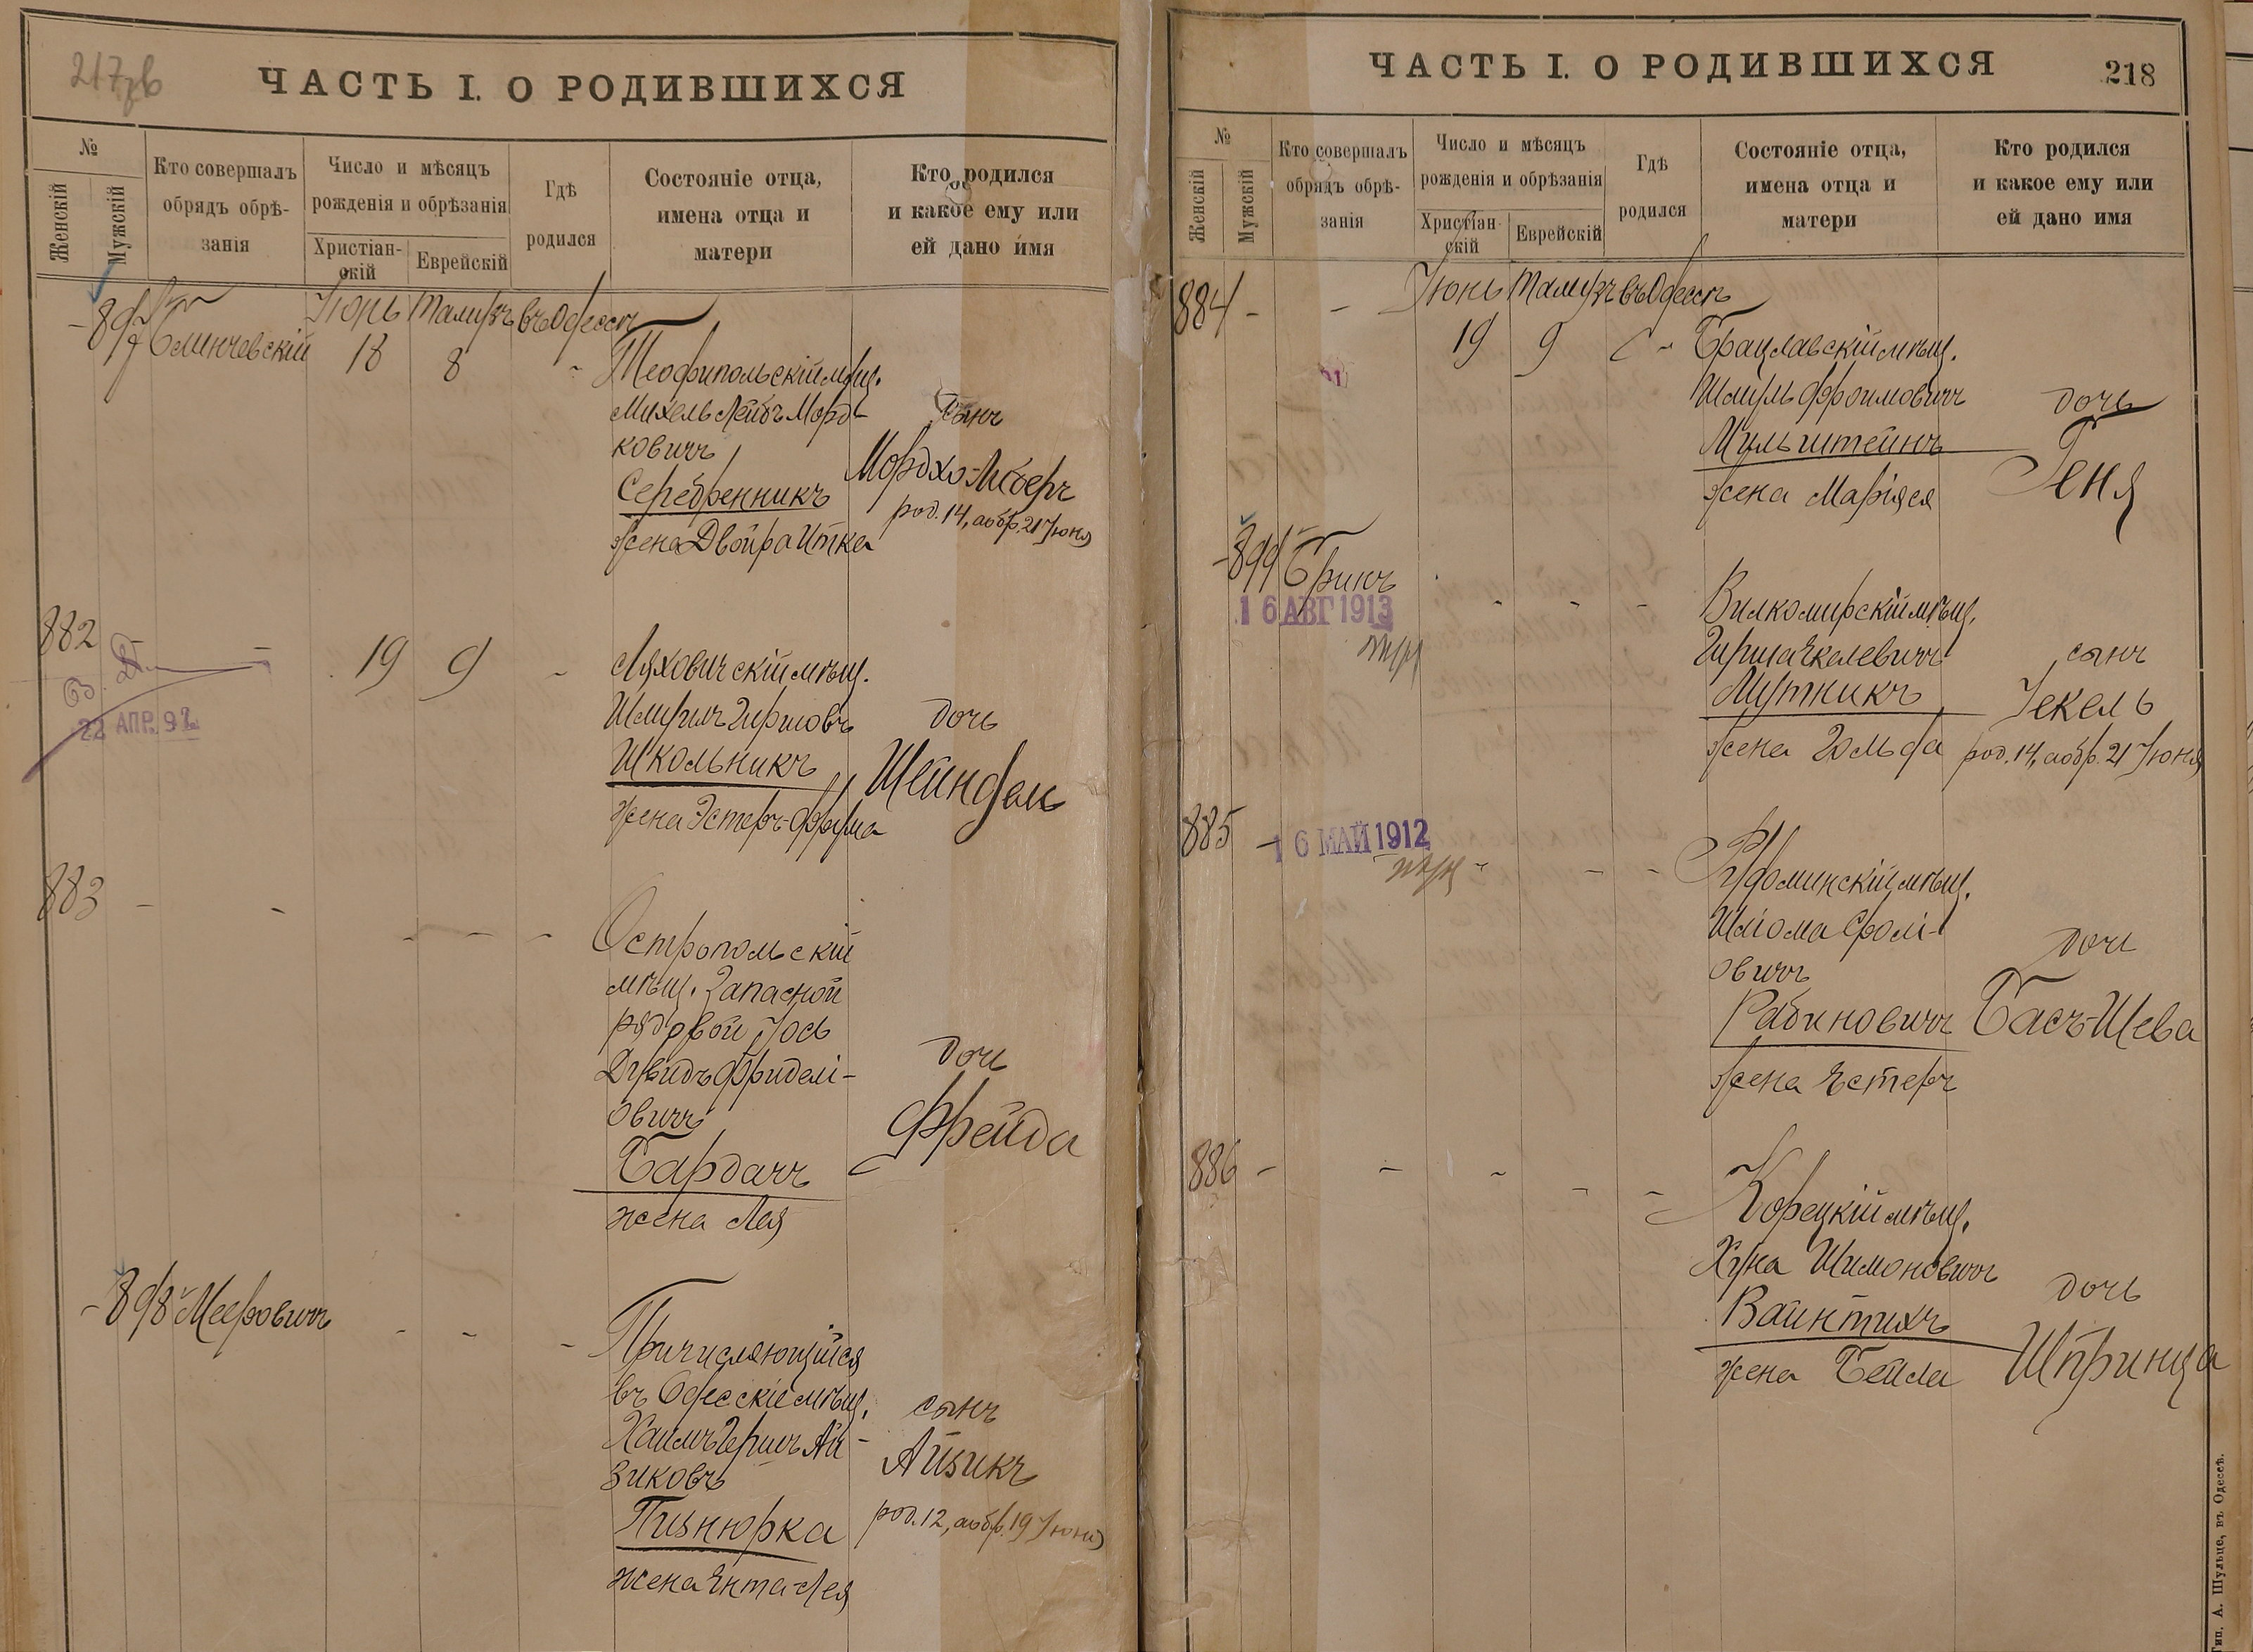 217 зв
ЧАСТЬ I. О РОДИВШИХСЯ
№
Женскій
Мужскій
Кто совершалъ
обрядъ обрѣ-
занія
Число и мѣсяцъ
рожденія и обрѣзанія
Христіан-
скій
Еврейскій
Гдѣ
родился
Состояніе отца,
имена отца и
матери
Кто родился
и какое ему или
ей дано имя
897
Блинчевскій
Іюнь Тамузъ въ Одессѣ
18 8
Теофипольскій мѣщ.
Михель Лейбъ Морд-
ковичъ
Серебренникъ
жена Двойра Итка
сынъ
Мордхо-Либеръ
род. 14, а обр. 21 Іюня
882
22 АПР. 92
19 9
Ляховичскій мѣщ.
Шмирилъ Гиршовъ
Школьникъ
жена Эстеръ-Фрума
дочь
Шейндель
883
Остропольскій
мѣщ. Запасной
рядовой Іось
Дувидъ Фриделі-
овичъ
Бардачъ
жена Лея
дочь
Фрейда
898
Мееровичъ
Причисляющійся
въ Одесскіе мѣщ.
Хаимъ Гершъ Ай-
зиковъ
Пизнюрка
жена Ента-Лея
сынъ
Айзикъ
род. 12, а обр. 19 Іюня
ЧАСТЬ I. О РОДИВШИХСЯ
218
№
Женскій
Мужскій
Кто совершалъ
обрядъ обрѣ-
занія
Число и мѣсяцъ
рожденія и обрѣзанія
Христіан-
скій
Еврейскій
Гдѣ
родился
Состояніе отца,
имена отца и
матери
Кто родился
и какое ему или
ей дано имя
884
Іюнь Тамузъ въ Одессѣ
19 9
Брацлавскій мѣщ.
Шмуль Фроимовичъ
Мильштейнъ
жена Маріяся
дочь
Геня
899
Бринъ
16 АВГ 1913
Вилкомирскій мѣщ.
Гирша Екелевичъ
Мутникъ
жена Гольда
сынъ
Іекель
род. 14, а обр. 21 Іюня
885
16 МАЙ 1912
мѣщ.
Шліома Сролі-
овичъ
Рабиновичъ
жена Естеръ
дочь
Басъ-Шева
886
Корецкій мѣщ.
Хуна Шимоновичъ
Вайнтихъ
жена Бейла
дочь
Шпринца
Тип. А. Шульце, въ Одессѣ.